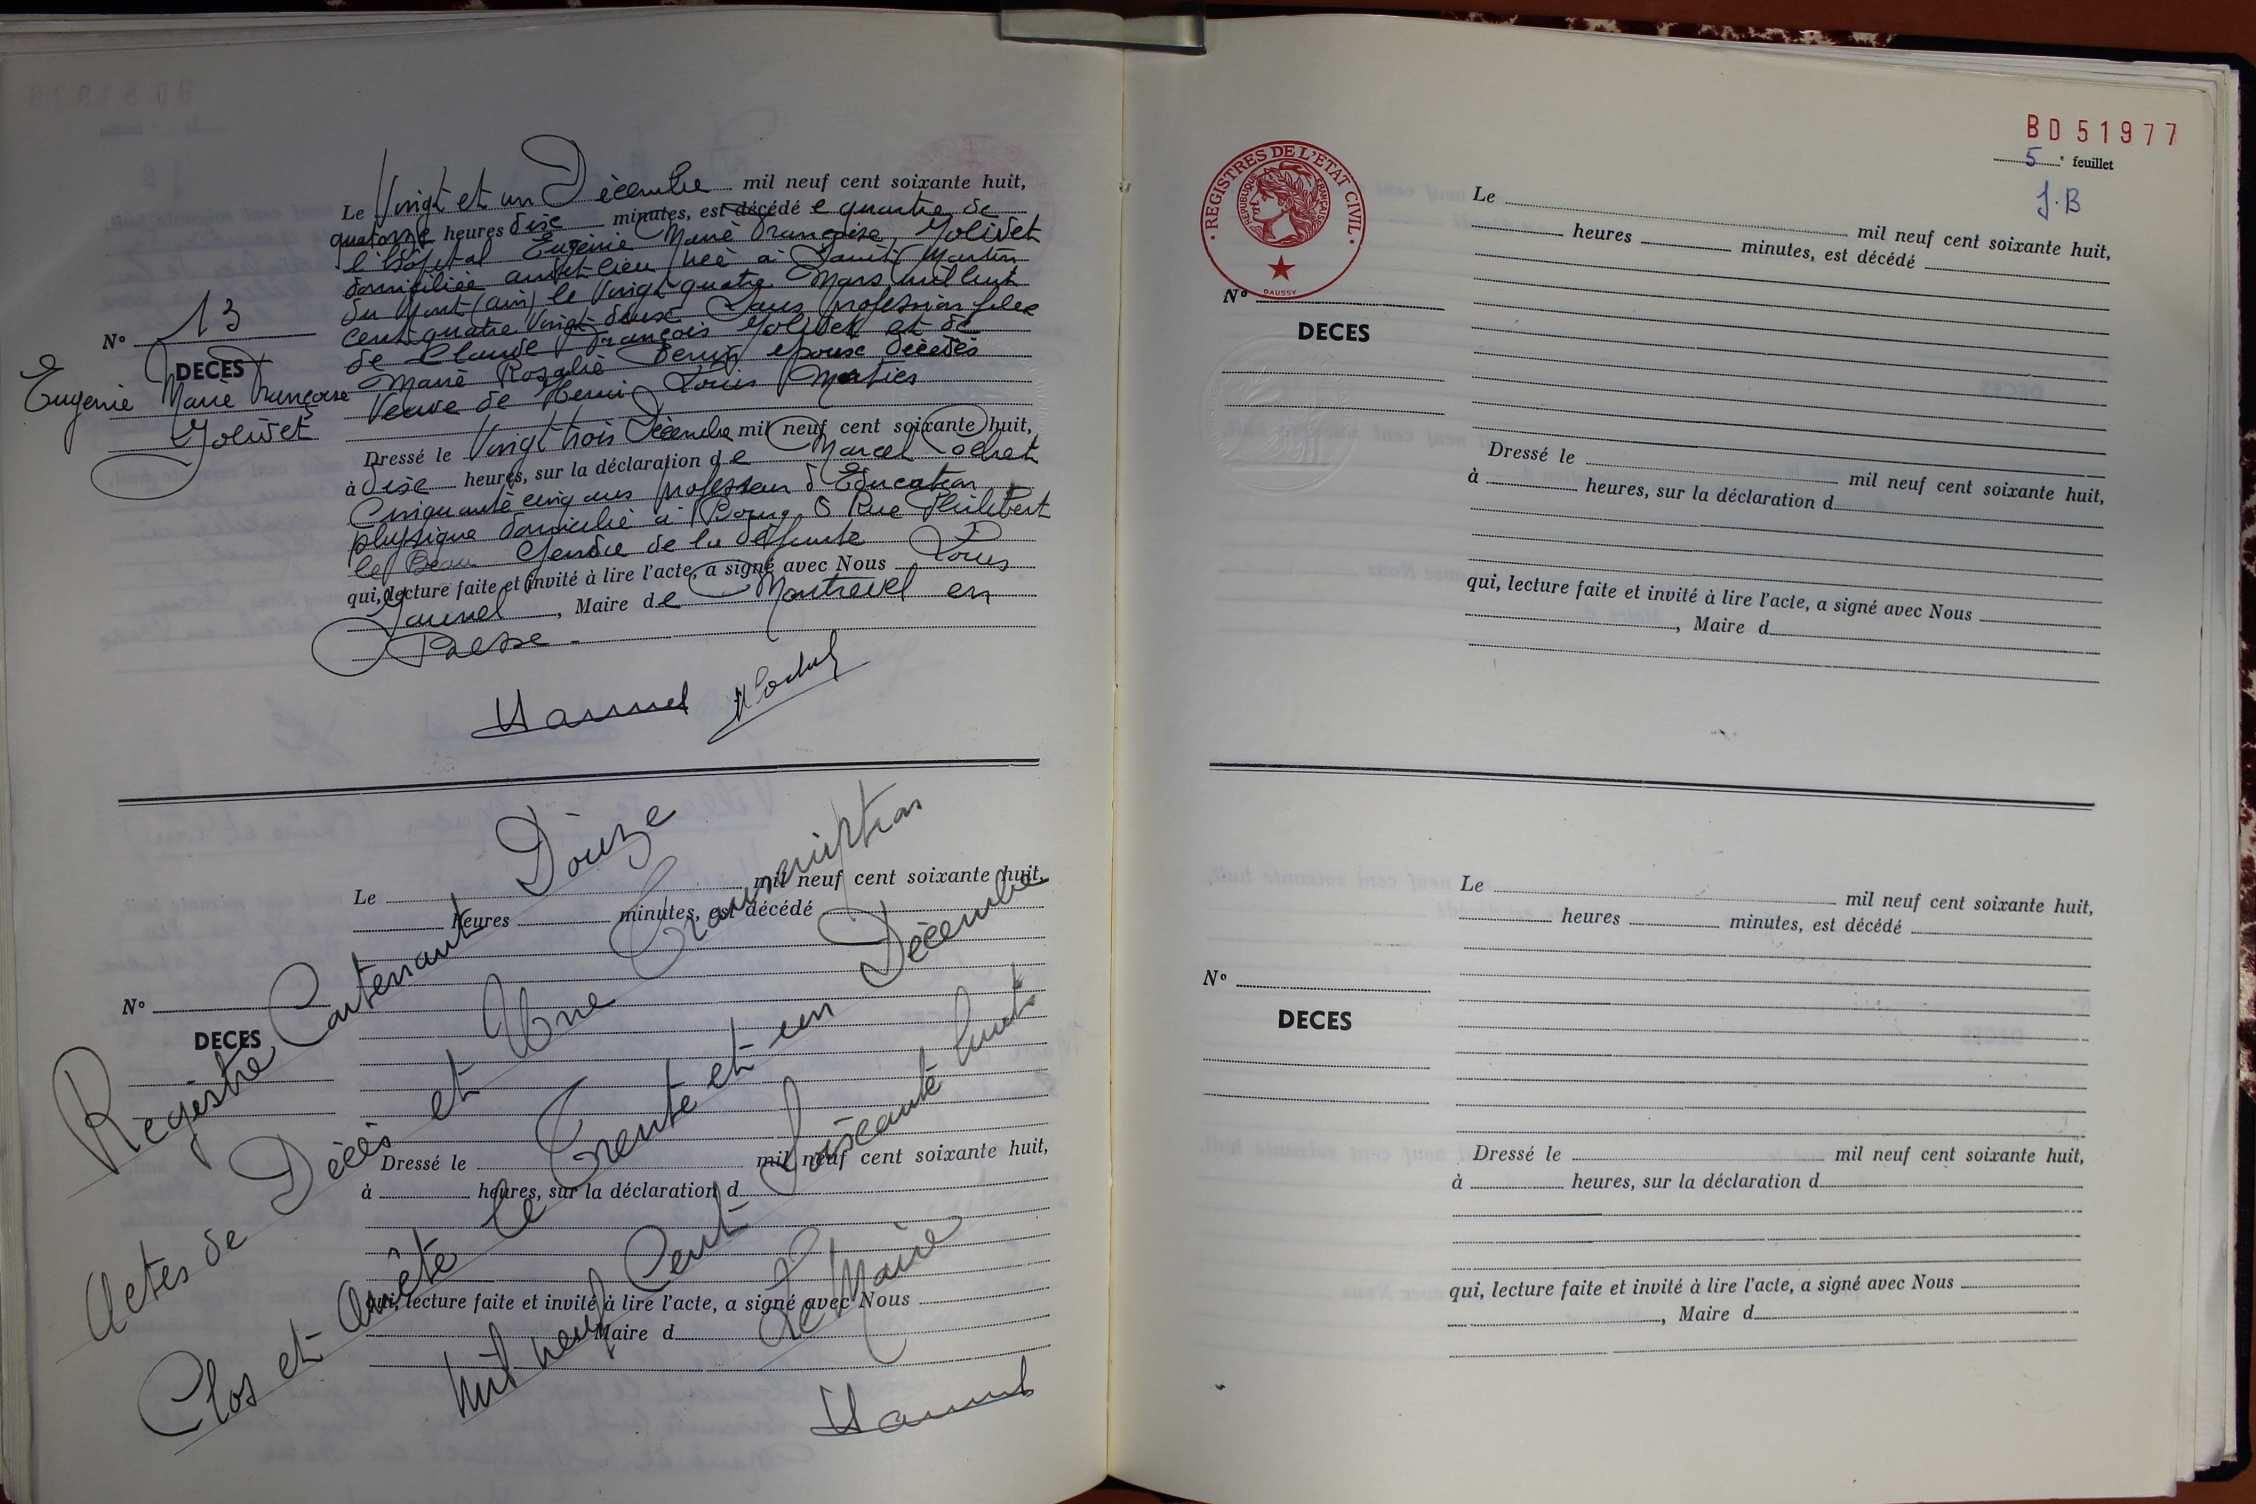 Le Vingt et un Décembre mil neuf cent soixante huit,
quatorze heures dix minutes, est décédé e quartre de
l'hôpital Eugénie Marie Françoise Jolivet
domiciliée audit-lieu née à Saint Martin
du Mont (ain) le Vingt quatre Mars mil huit
cent quatre Vingt douze Sans profession fille
de Claude François Jolivet et de
Marie Rozalie Perrin épouse décédés
Veuve de Henri Louis
N° 13
DECES
Eugénie Marie Françoise
Jolivet
Dressé le Vingt trois Décembre mil neuf cent soixante huit,
à dix heures, sur la déclaration de Marcel Cochet
Cinquante cinq ans professeur d'Education
physique domicilié à Bourg 6 Rue Philibert
le Beau Gendre de la défunte
qui, lecture faite et invité à lire l'acte, a signé avec Nous Louis
Jaunel, Maire de Montrevel en
Bresse -
Le mil neuf cent soixante huit,
heures minutes, est décédé
N°
DECES
Dressé le mil neuf cent soixante huit,
à heures, sur la déclaration d
qui, lecture faite et invité à lire l'acte, a signé avec Nous
Maire d
Registre Contenant Douze
Actes de Décès et Une Transcription
Clos et Arrêté le Trente et un Décembre
Mil neuf Cent Soixante huit
Le Maire
BD 51977
5e feuillet
J.B
REGISTRES DE L'ETAT CIVIL
REPUBLIQUE FRANÇAISE
DAUSSY
Le mil neuf cent soixante huit,
heures minutes, est décédé
N°
DECES
Dressé le mil neuf cent soixante huit,
à heures, sur la déclaration d
qui, lecture faite et invité à lire l'acte, a signé avec Nous
, Maire d
Le mil neuf cent soixante huit,
heures minutes, est décédé
N°
DECES
Dressé le mil neuf cent soixante huit,
à heures, sur la déclaration d
qui, lecture faite et invité à lire l'acte, a signé avec Nous
, Maire d